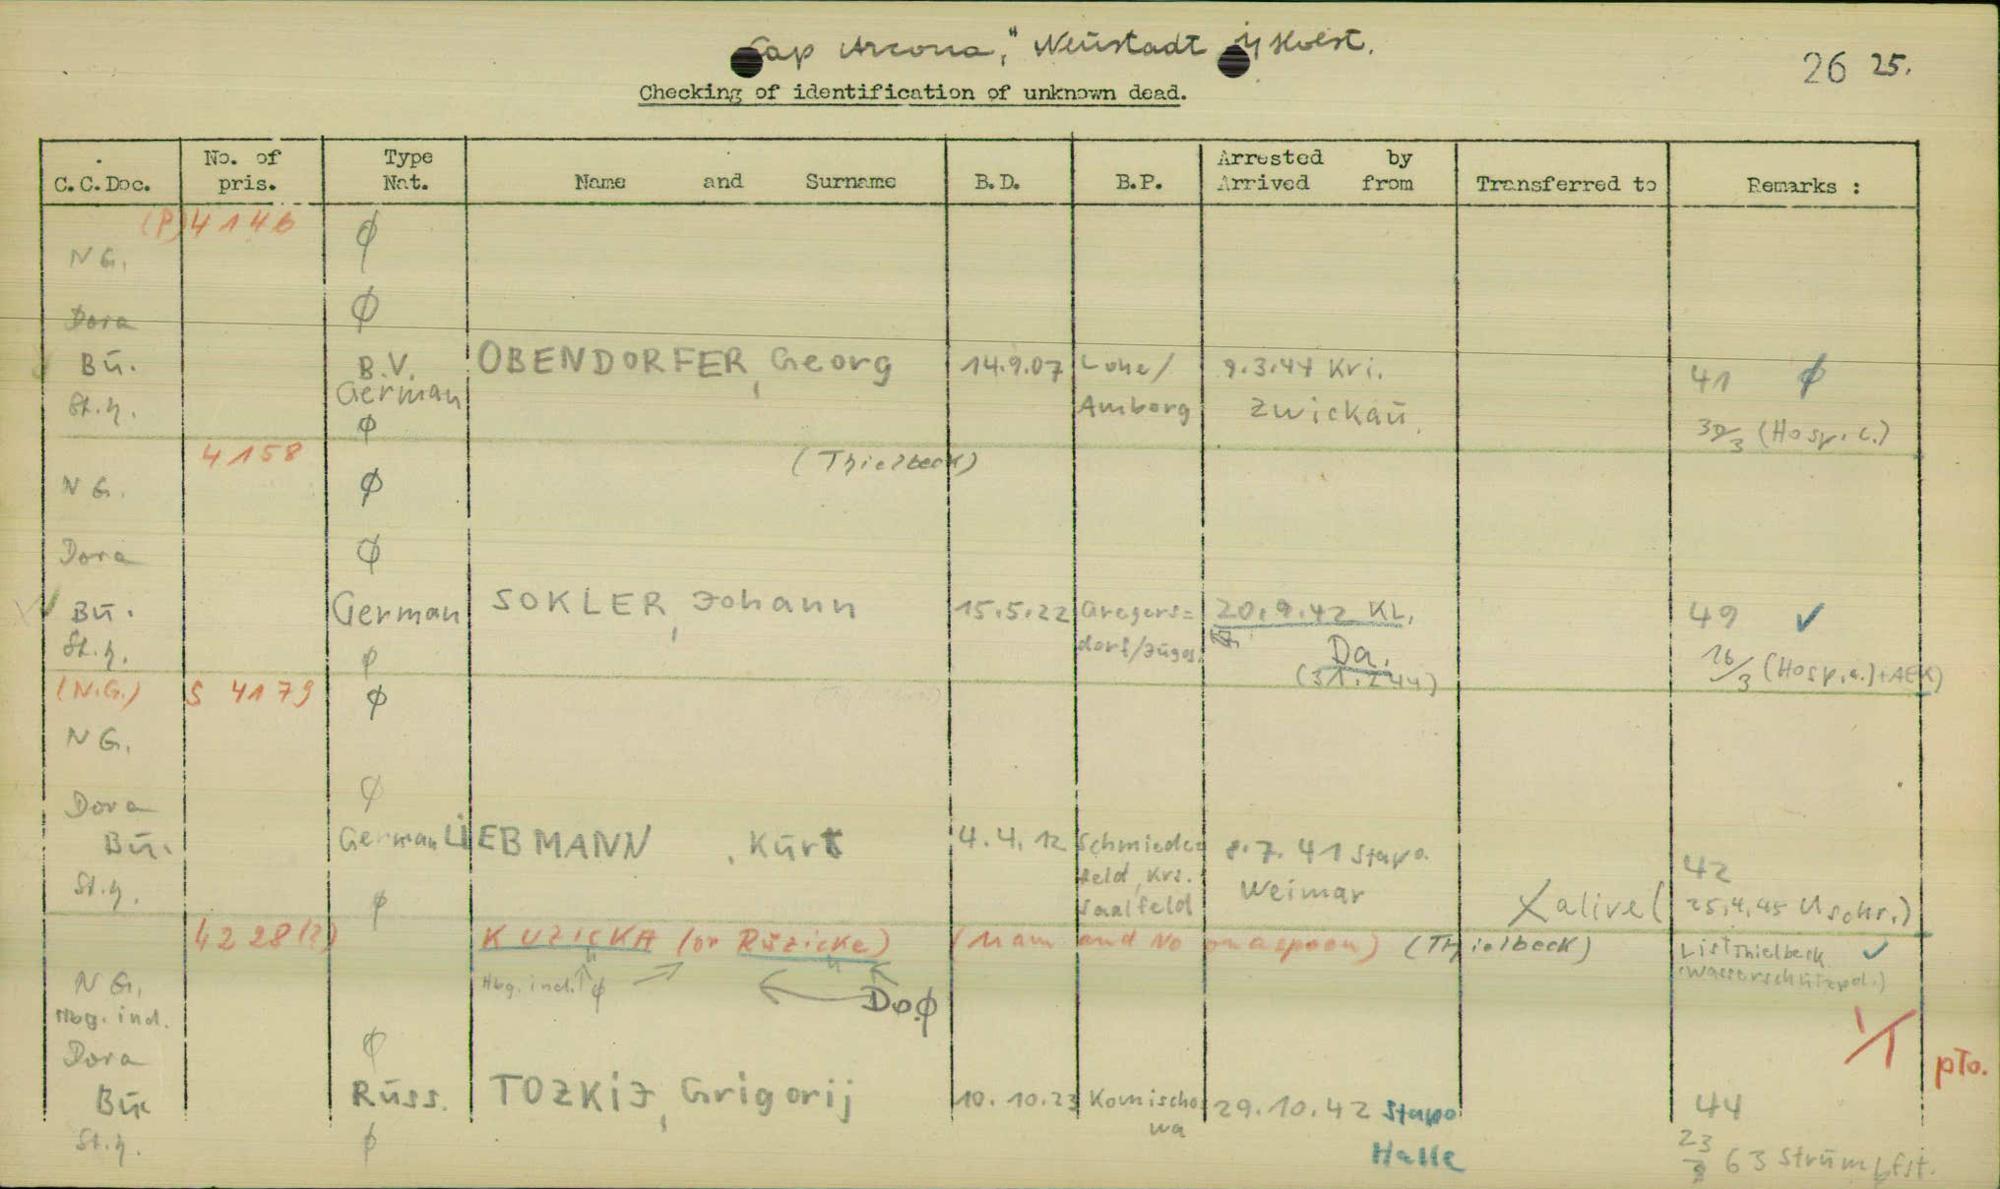 "Cap Arcona," Neustadt i/Holst.
26 25.
Checking of identification of unknown dead.
C.C.Doc. No. of pris. Type Nat. Name and Surname B.D. B.P. Arrested by Arrived from Transferred to Remarks :
(P) 4146 ∅
N G.
Dora ∅
Bü. B.V. German OBENDORFER, Georg 14.9.07 Lohe/ Amberg 9.3.44 Kri. Zwickau. 41 ∅
St.y. ∅ 30/3 (Hosp. c.)
4158 (Thielbeck)
N G. ∅
Dora ∅
Bü. German SOKLER, Johann 15.5.22 Gregers= dorf/ 20.9.42 KL. Da. 49 ✓
St.y. ∅ 16/3 (Hosp. c.)+AEK)
(N.G.) S 4179 ∅
N G.
Dora ∅
Bü. German LiEBMANN, Kurt 4.4.12 Schmiede= feld, Krs. Saalfeld 8.7.41 Stapo. Weimar 42
St.y. ∅ X alive ( 25.4.45 Uschr.)
4228(?) KUZICKA (or Ruzicke) (Nam and No on a spoon) (Thielbeck) List Thielbeck ✓
(Wasserschützpol.)
N G. Hbg. ind. ∅ Do ∅
Hbg. ind.
Dora ∅
1/1
pto.
Bü Russ. TOZKiJ, Grigorij 10.10.23 Komischo wa 29.10.42 Stapo Halle 44
St.y. ∅ 23/9 63 Strümpfst.